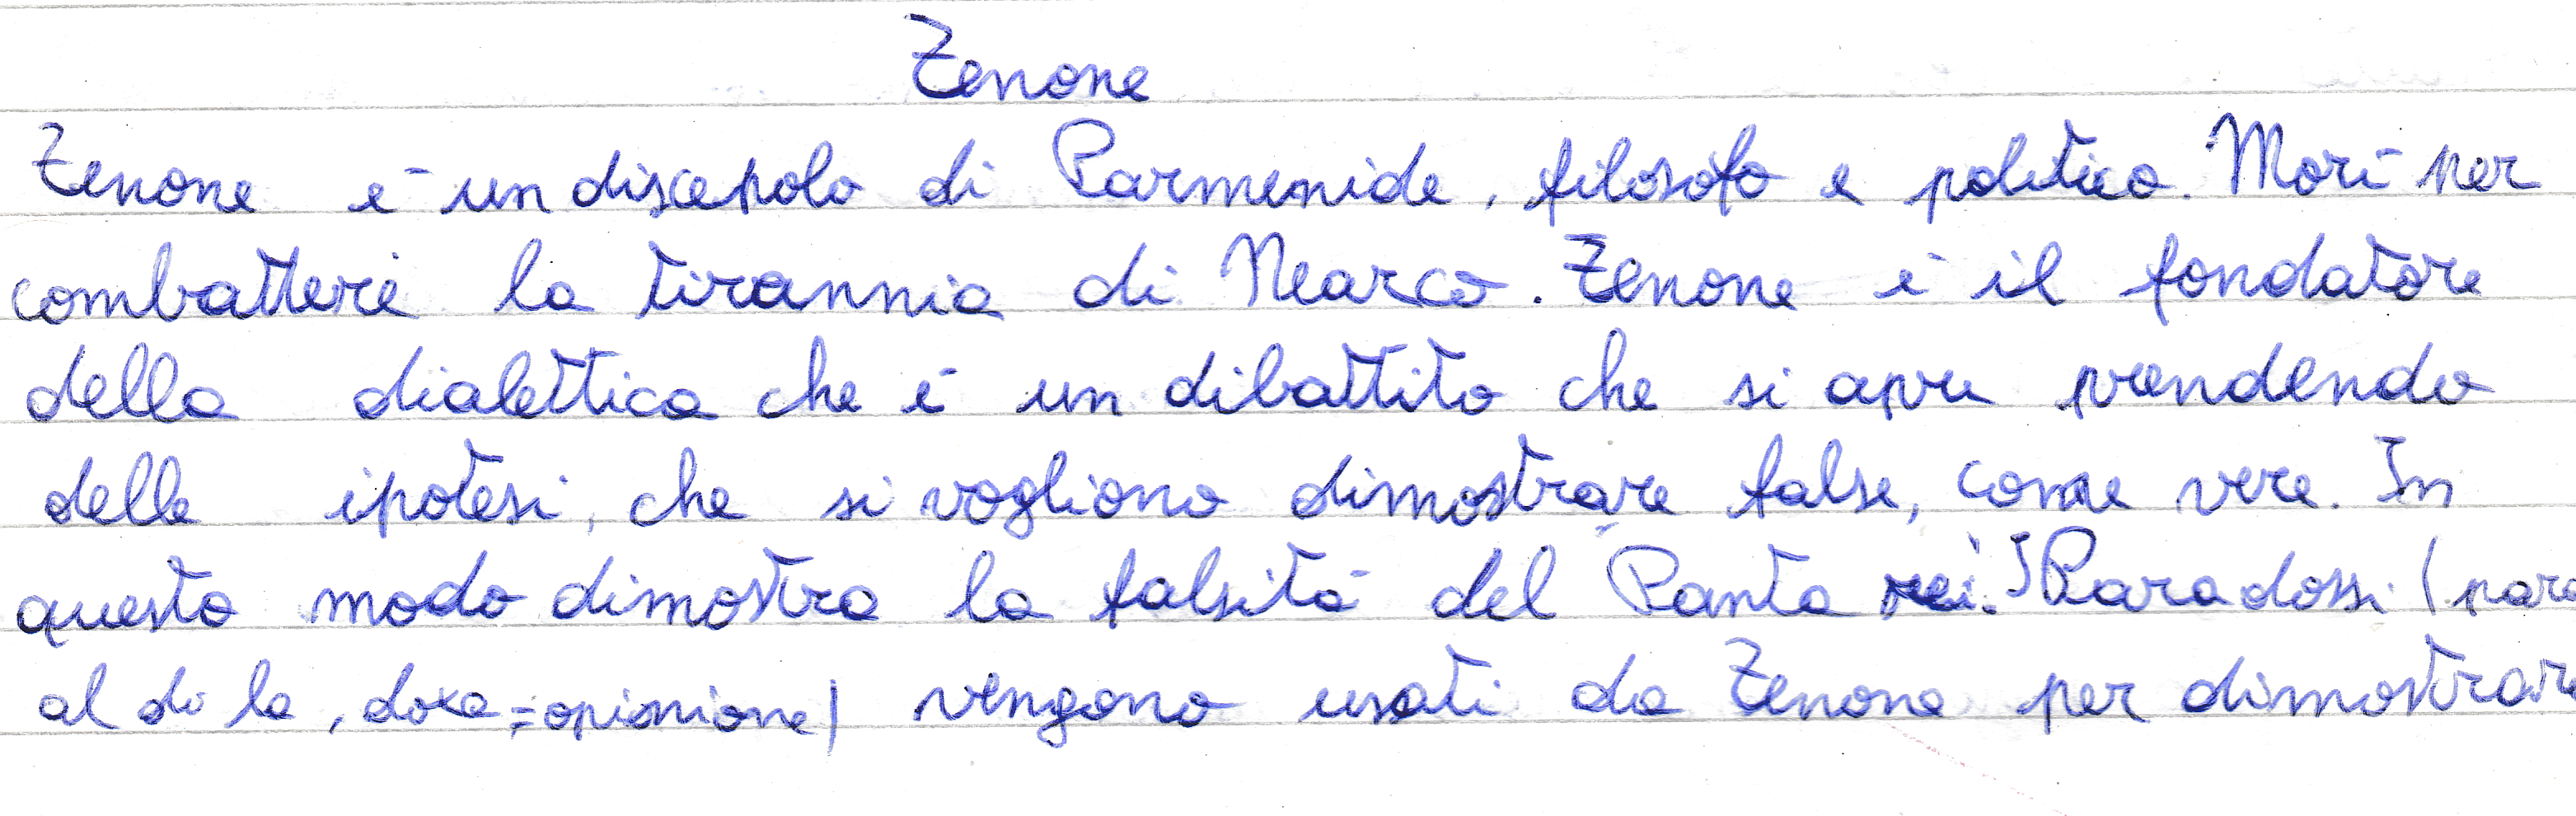 Zenone
Zenone è un discepolo di Parmenide, filosofo e politico. Morì per
combattere la tirannia di Nearco. Zenone è il fondatore
della dialettica che è un dibattito che si apre prendendo
delle ipotesi, che si vogliono dimostrare false, come vere. In
questo modo dimostra la falsità del Panta rei. I Paradossi (para
al di la, doxa = opinione) vengono usati da Zenone per dimostrare